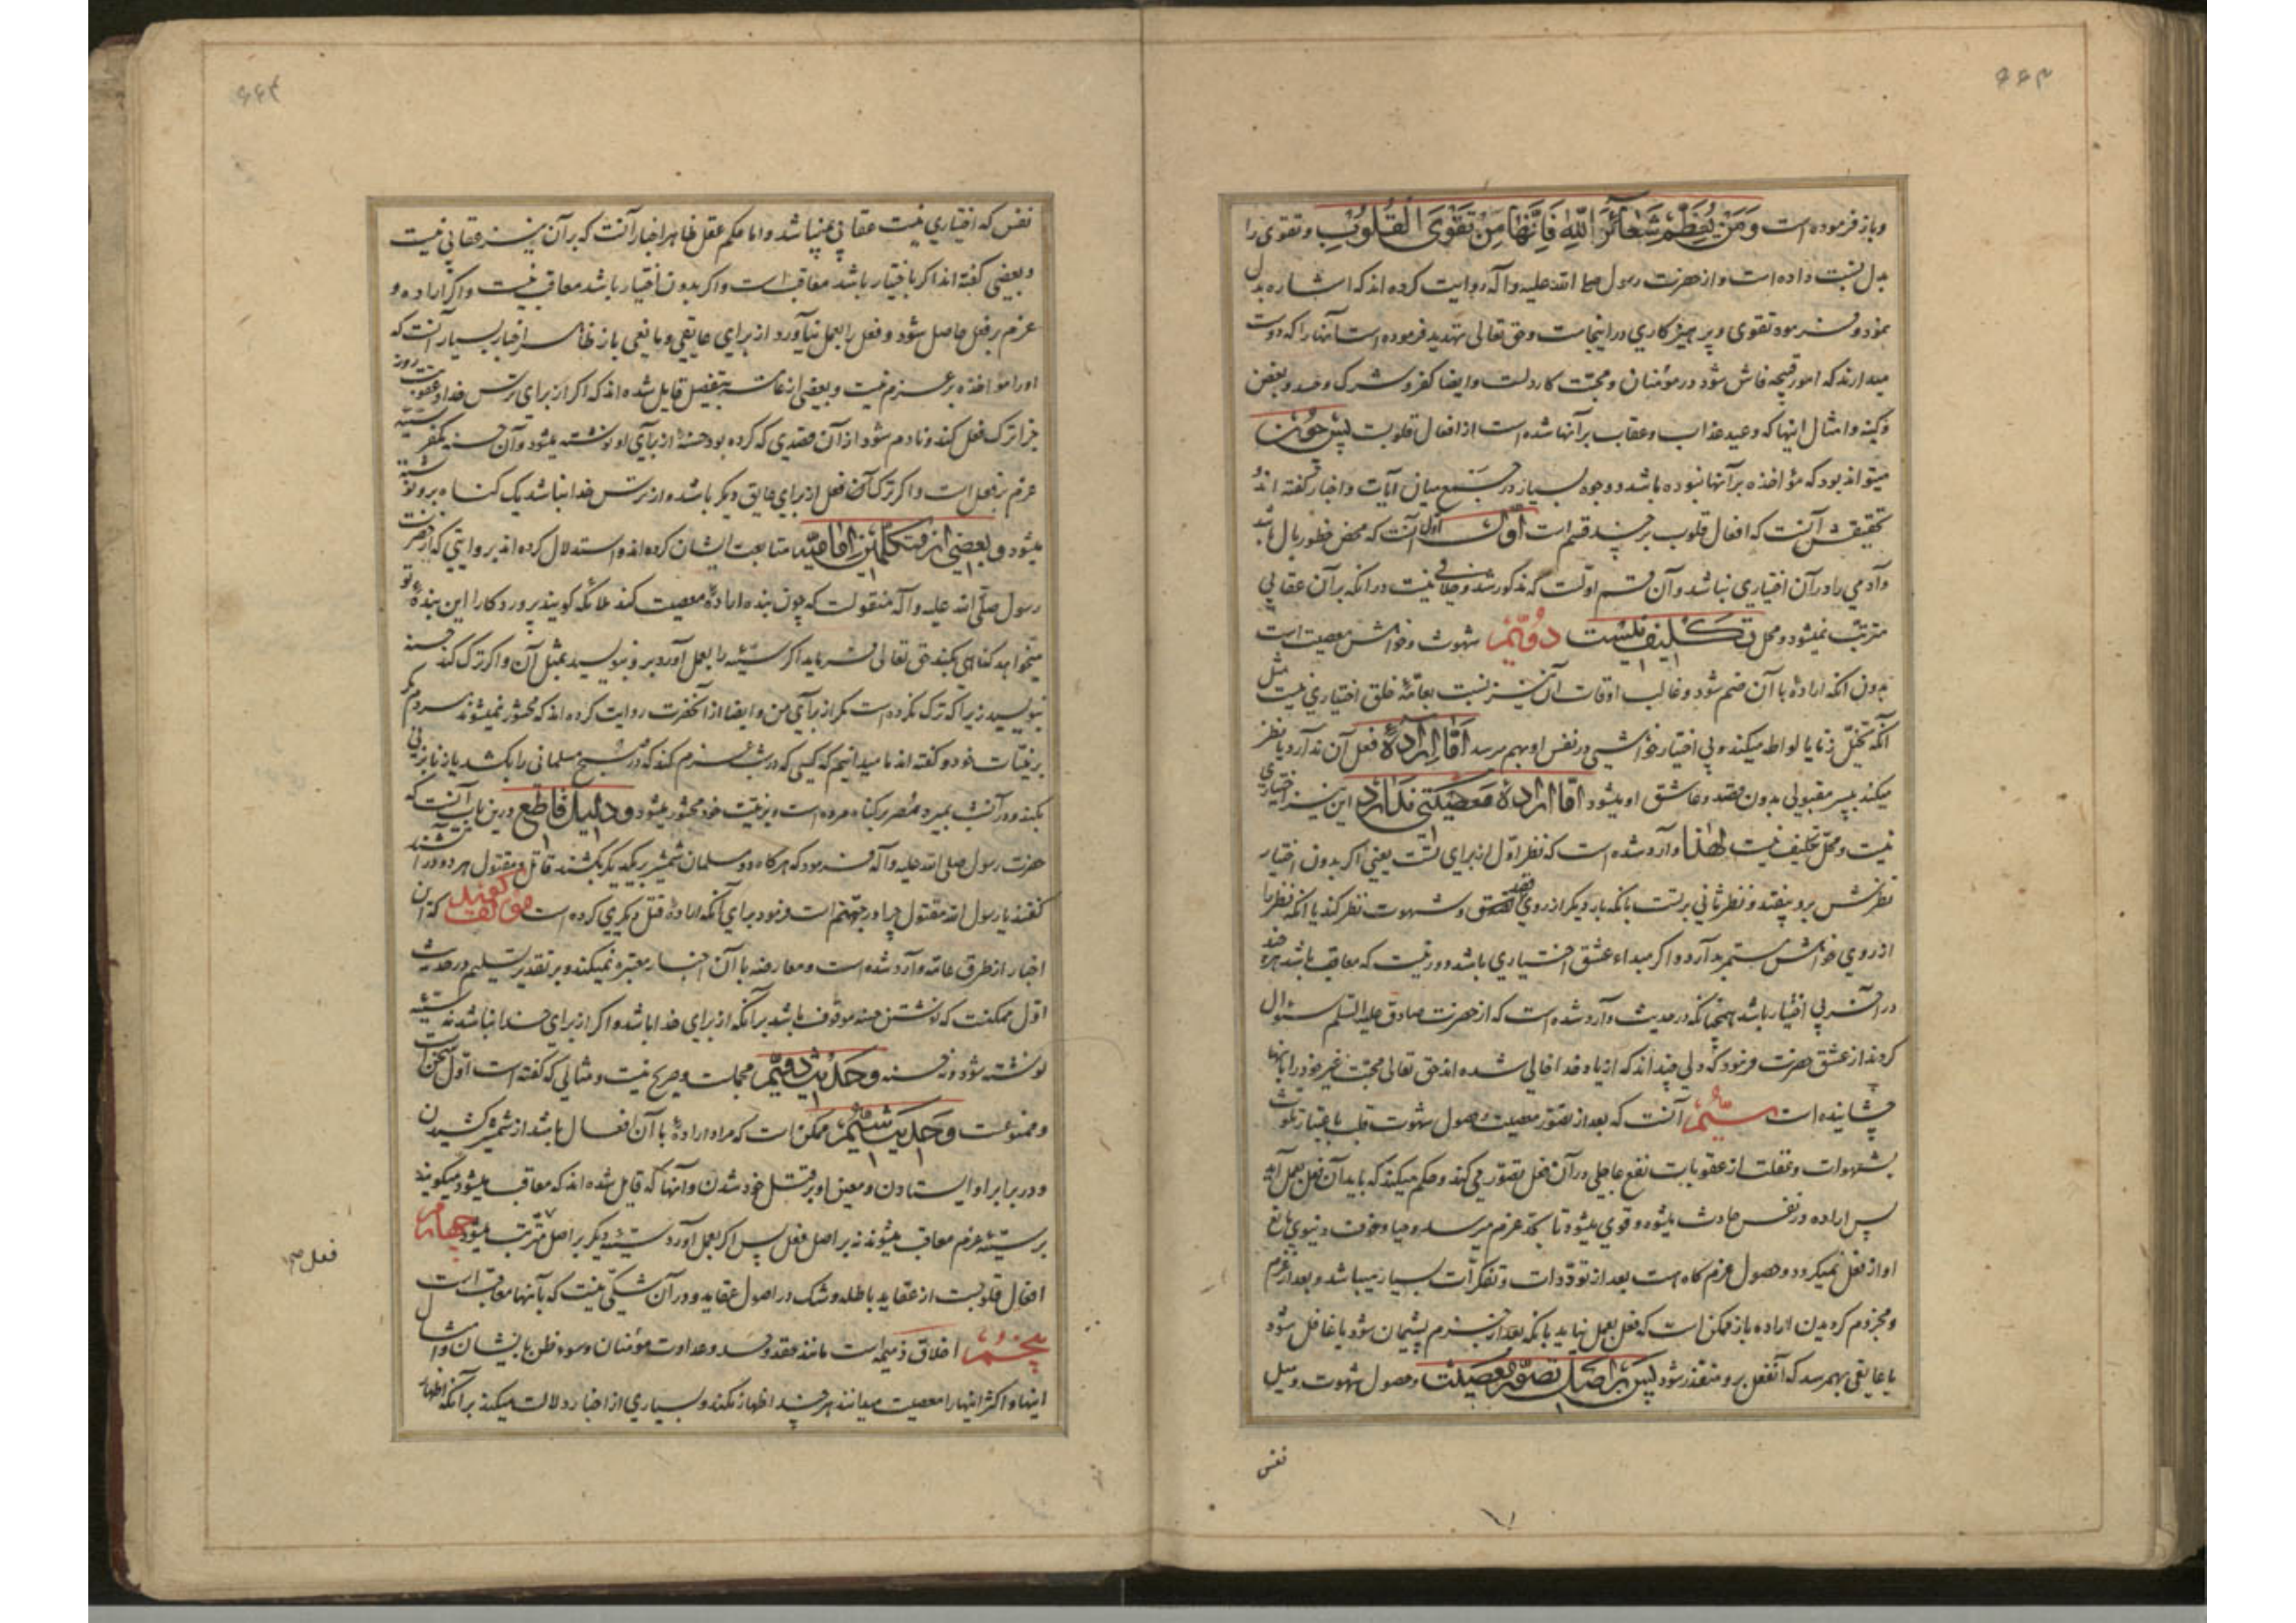 ۶۶۳
وباز فرموده است وَمَنْ يُعَظِّمْ شَعَائِرَ اللّهِ فَاِنَّهَا مِنْ تَقْوَى الْقُلُوبِ وتقوی را
بدل نسبت داده است واز حضرت رسول صلی الله علیه وآله روایت کرده اند که اشاره بدل
نمود وفرمود تقوی وپرهیزکاری در اینجاست وحق تعالی تهدید فرموده است آنها را که دوست
میدارند که امور قبیحه فاش شود در مؤمنان ومحبت کار دلست وایضا کفر وشرک وحسد وبغض
وکینه وامثال اینها که وعید عذاب وعقاب بر آنها شده است از افعال قلوبست پس چون
میتواند بود که مؤاخذه بر آنها نبوده باشد ووجوه بسیار در جمع میان آیات واخبار گفته اند
تحقیقش آنست که افعال قلوب بر چند قسم است اول آنست که محض خطور بال باشد
وآدمی را در آن اختیاری نباشد وآن قسم اولست که مذکور شد وخلافی نیست در آنکه بر آن عقابی
مترتب نمیشود ومحل تکلیف نیست دویم شهوت وخواهش معصیت است
بدون آنکه اراده با آن ضم شود وغالب اوقات آن نیز نسبت بعامه خلق اختیاری نیست مثل
آنکه تخیل زنا یا لواطه میکند وبی اختیار خواهشی در نفس او بهم میرسد اما اراده فعل آن ندارد یا نظر
میکند بپسر مقبولی بدون قصد وعاشق او میشود اما اراده معصیتی ندارد این نیز اختیاری
نیست ومحل تکلیف نیست لهذا وارد شده است که نظر اول از برای تست یعنی اگر بدون اختیار
نظرش برو بیفتد ونظر ثانی بر تست بآنکه بار دیگر از روی قصد وشهوت نظر کند یا آنکه نظر را
از روی خواهش مستمر بدارد واگر مبداء عشق اختیاری باشد دور نیست که معاقب باشد هر چند
در آخر بی اختیار باشد همچنانکه در حدیث وارد شده است که از حضرت صادق علیه السلم سئوال
کردند از عشق حضرت فرمود که دلی چند اند که از یاد خدا خالی شده اند حق تعالی محبت غیر خود را بآنها
چشانیده است سیّم آنست که بعد از تصور معصیت وحصول شهوت قلب باعتبار تلوث
بشهوات وغفلت از عقوبات نفع عاجلی در آن فعل تصور می کند وحکم میکند که باید آن فعل بعمل آید
پس اراده در نفس حادث میشود وقوی میشود تا بحد عزم میرسد وحیا وخوف دنیوی مانع
او از فعل نمیگردد وحصول عزم گاه است بعد از ترددات وتفکرات بسیار میباشد وبعد از عزم
ومجزوم گردیدن اراده باز ممکن است که فعل بعمل نیاید بآنکه بعد از عزم پشیمان شود یا غافل شود
یا عایقی بهم رسد که آنفعل برو متعذر شود پس بر اصل تصور معصیت وحصول شهوت ومیل
نفس
۶۶۴
نفس که اختیاری نیست عقابی نمیباشد واما بحکم عقل ظاهر اخبار آنست که بر آن نیز عقابی نیست
وبعضی گفته اند اگر باختیار باشد معاقب است واگر بدون اختیار باشد معاقب نیست واگر اراده و
عزم بر فعل حاصل شود وفعل را بعمل نیاورد از برای عایقی ومانعی باز ظاهر اخبار بسیار آنست که
او را مؤاخذه بر عزم نیست وبعضی از عامه بتفصیل قایل شده اند که اگر از برای ترس خدا وعقوبت روز
جزا ترک فعل کند ونادم شود از آن قصدی که کرده بود حسنه از برای او نوشته میشود وآن حسنه مکفر سیئه
عزم بر فعل است واگر ترک آن فعل از برای عایق دیگر باشد واز ترس خدا نباشد یک گناه برو نوشته
میشود وبعضی از متکلمین امامیه متابعت ایشان کرده اند واستدلال کرده اند بروایتی که از حضرت
رسول صلی الله علیه وآله منقولست که چون بنده اراده معصیت کند ملائکه گویند پروردگارا این بنده تو
میخواهد گناهی بکند حق تعالی فرماید اگر سیئه را بعمل آورد برو بنویسید بمثل آن واگر ترک کند حسنه
بنویسید زیرا که ترک نکرده است مگر از برای من وایضا از آنحضرت روایت کرده اند که محشور نمیشوند مردم مگر
بر نیات خود وگفته اند ما میدانیم که کسی که در شب عزم کند که در صبح مسلمانی را بکشد یا زنا بزنی
بکند ودر آنشب بمیرد مصر بر گناه مرده است وبر نیت خود محشور میشود ودلیل قاطع درین باب آنست که
حضرت رسول صلی الله علیه وآله فرمود که هرگاه دو مسلمان شمشیر بر یکدیگر بکشند قاتل ومقتول هر دو در آتشند
گفتند یا رسول الله مقتول چرا در جهنم است فرمود برای آنکه اراده قتل دیگری کرده است مؤلف گوید که این
اخبار از طرق عامه وارد شده است ومعارضه با آن اخبار معتبره نمیکند وبر تقدیر تسلیم در حدیث
اول ممکنست که نوشتن حسنه موقوف باشد بر آنکه از برای خدا باشد واگر از برای خدا نباشد نه سیئه
نوشته شود ونه حسنه وحدیث دویم مجملست وصریح نیست ومثالی که گفته است اول سخن است
وممنوعست وحدیث سیم ممکن است که مراد اراده با آن افعال باشد از شمشیر کشیدن
ودر برابر او ایستادن ومعین او بر قتل خود شدن وآنها که قایل شده اند که معاقب میشود میگویند
بر سیئه عزم معاقب میشوند نه بر اصل فعل پس اگر بعمل آورد سیئه دیگر بر اصل مترتب میشود چهارم
فعل صح
افعال قلوبست از عقاید باطله وشک در اصول عقاید ودر آن شکی نیست که بآنها معاقب است
پنجم اخلاق ذمیمه است مانند حقد وحسد وعداوت مؤمنان وسوء ظن بایشان وامثال
اینها واکثر اینها را معصیت میدانند هر چند اظهار نکند وبسیاری از اخبار دلالت میکند بر آنکه اظهار